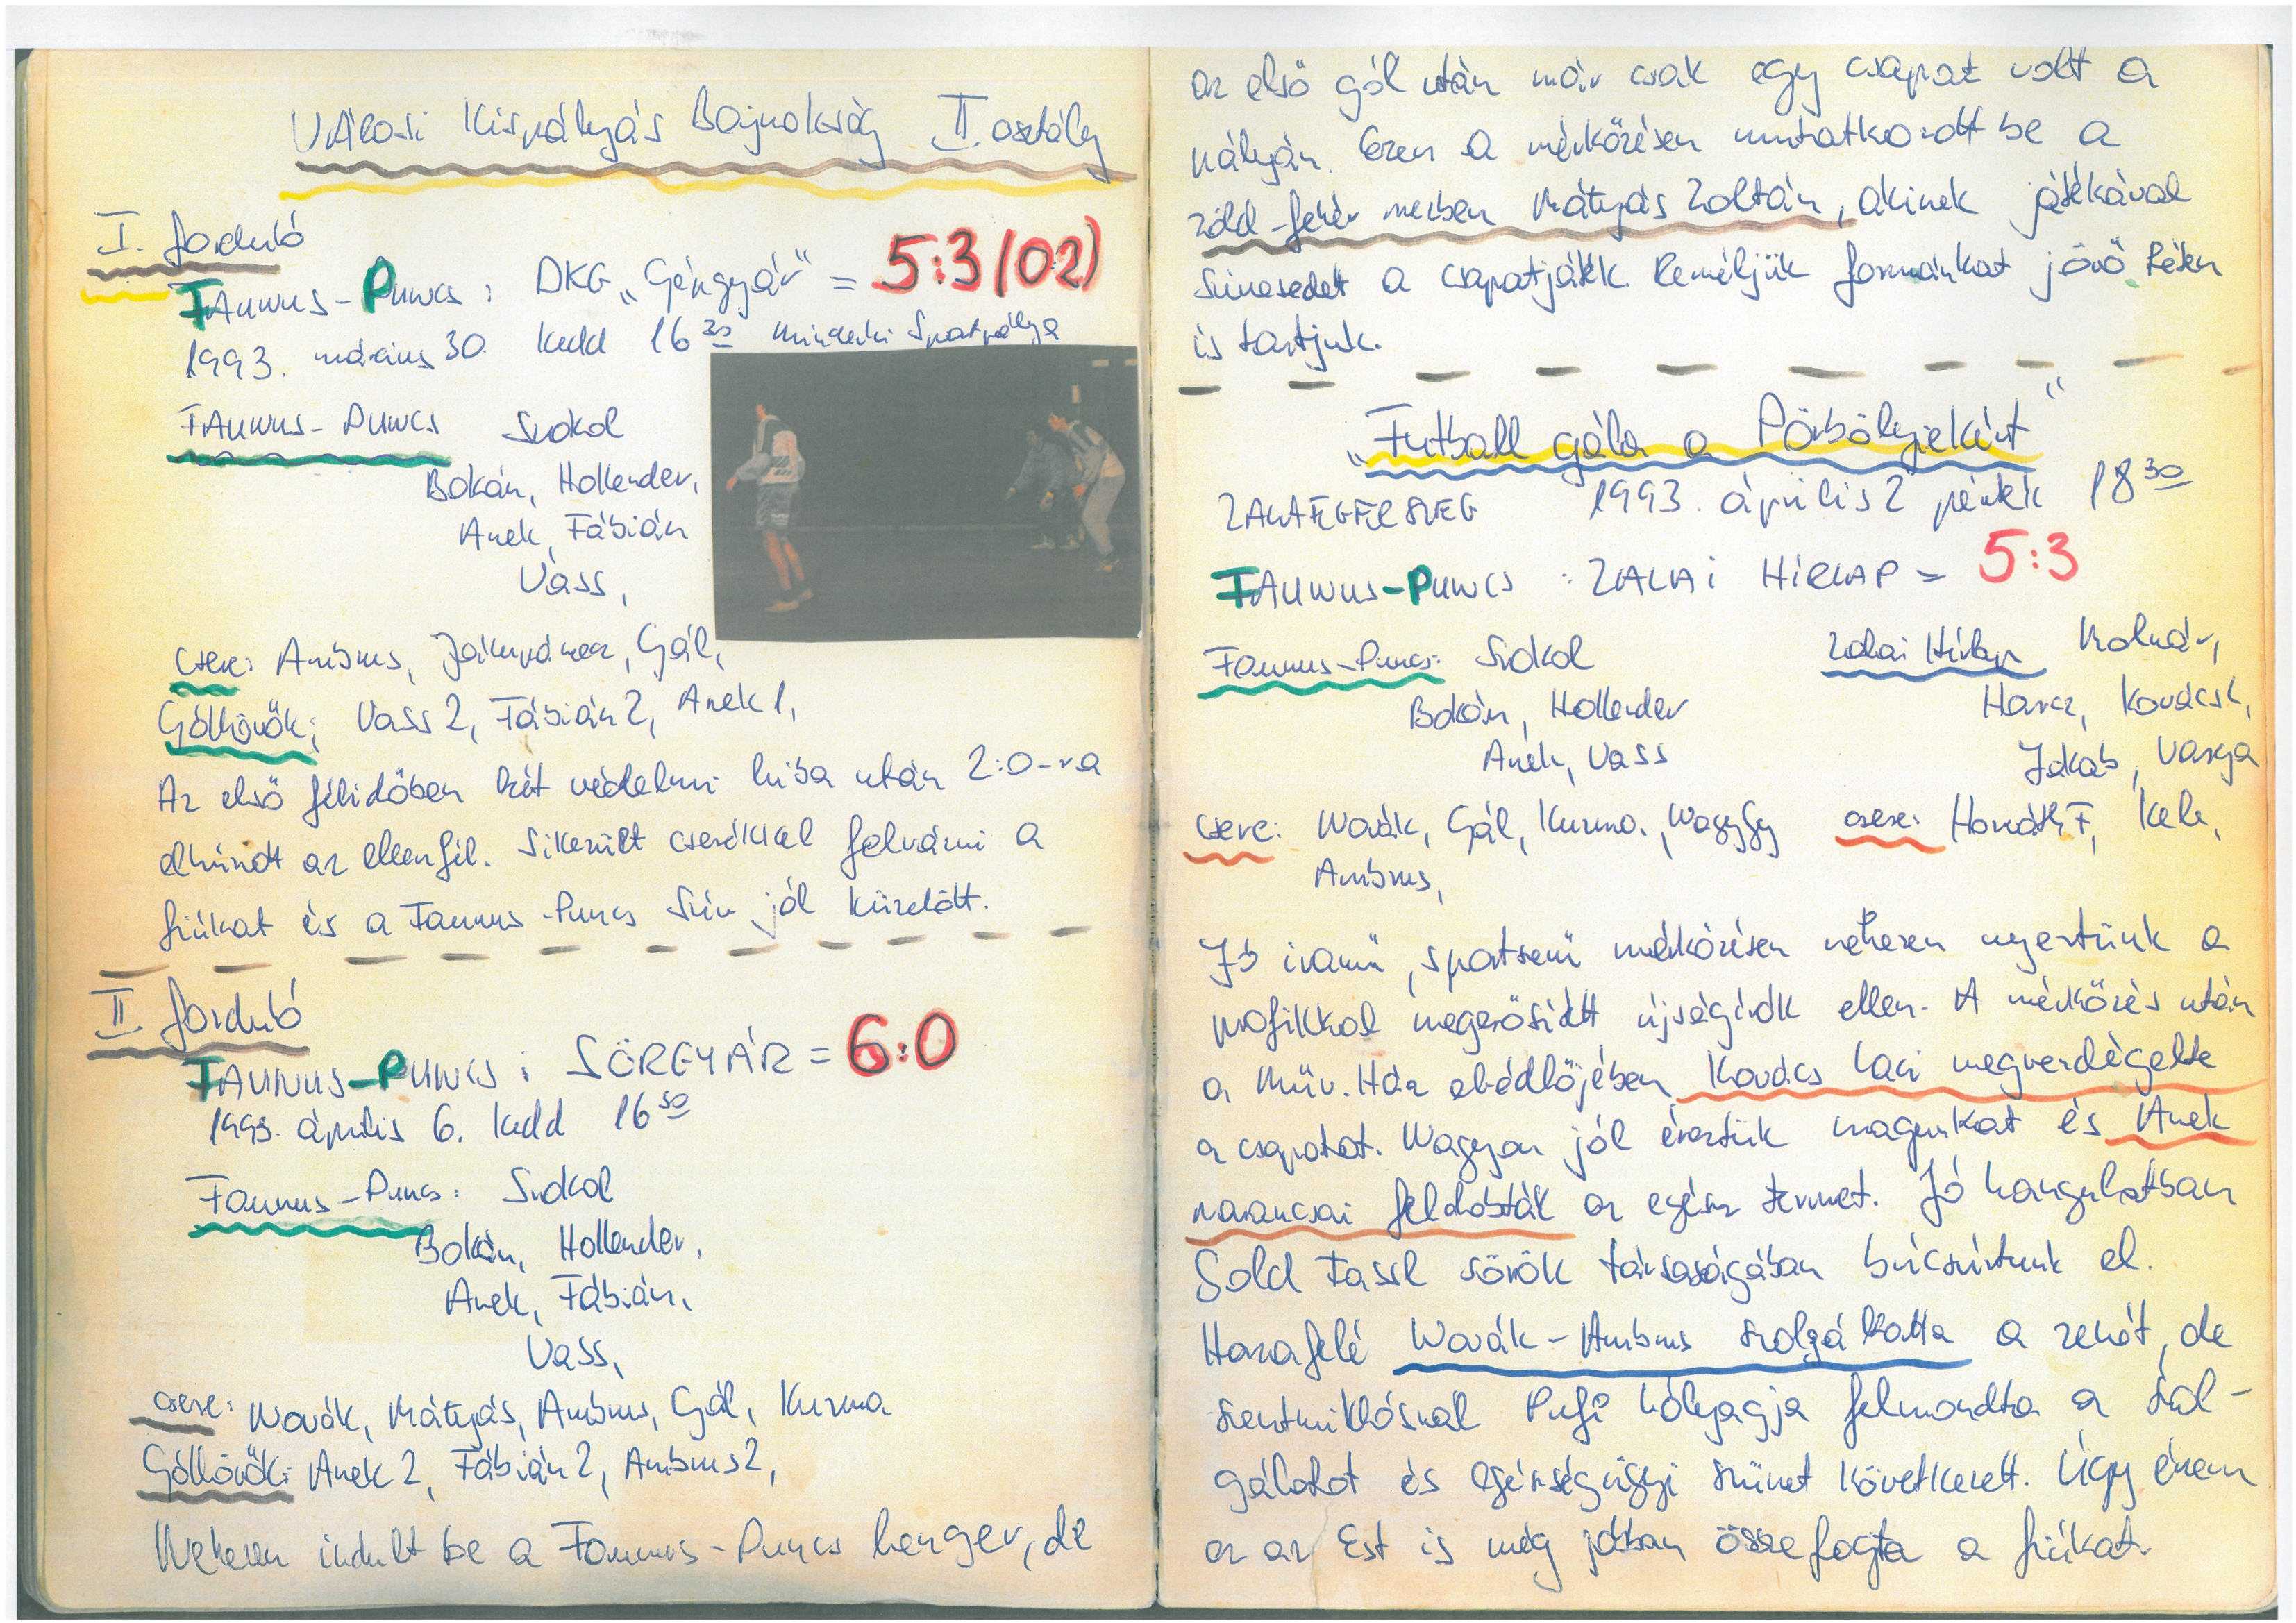 Városi Kispályás Bajnokság II. osztály
I. forduló
TAUNUS-PUNCS : DKG „Gépgyár" = 5:3 (02)
1993. március 30. kedd 16 30 Sportpálya
TAUNUS-PUNCS Szokol
Bokán, Hollender,
Anek, Fábián
Vass,
csere: Ambrus, Gál,
Góllövők: Vass 2, Fábián 2, Anek 1,
Az első félidőben két védelmi hiba után 2:0-ra
elhúzott az ellenfél. Sikerült cserékkel felrázni a
fiúkat és a Taunus-Puncs Szív jól küzdött.
II. forduló
TAUNUS-PUNCS : SÖRGYÁR = 6:0
1993. április 6. kedd 16 50
Taunus-Puncs: Szokol
Bokán, Hollender,
Anek, Fábián,
Vass,
csere: Novák, Mátyás, Ambrus, Gál, Kuzma
Góllövők: Anek 2, Fábián 2, Ambrus 2,
Nehezen indult be a Taunus-Puncs henger, de
az első gól után már csak egy csapat volt a
pályán. Ezen a mérkőzésen mutatkozott be a
zöld-fehér mezben Mátyás Zoltán, akinek játékával
színesedett a csapatjáték. Reméljük formánkat jövő héten
is tartjuk.
„Futball gála a Pörbölyiekért"
ZALAEGERSZEG 1993. április 2 péntek 18 30
TAUNUS-PUNCS : ZALAI HÍRLAP = 5:3
Taunus-Puncs: Szokol Zalai Hírlap Molnár,
Bokán, Hollender Harcz, Kovács L,
Anek, Vass Jakab, Varga
csere: Novák, Gál, Kuzma, Nagy Gy csere: Horváth F, Kele,
Ambrus,
Jó iramú, sportszerű mérkőzésen nehezen nyertünk a
profikkal megerősített újságírók ellen. A mérkőzés után
a Műv. Ház ebédlőjében Kovács Laci megvendégelte
a csapatot. Nagyon jól éreztük magunkat és Anek
narancsai feldobták az egész termet. Jó hangulatban
Gold Fassl sörök társaságában búcsúztunk el.
Hazafelé Novák-Ambrus szolgáltatta a zenét, de
szentmiklósnál Pufi hólyagja felmondta a szol-
gálatot és egészségügyi szünet következett. Úgy érzem
ez az Est is még jobban összefogta a fiúkat.